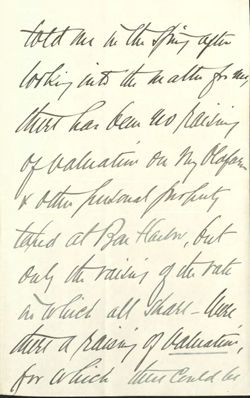 told me in the Spring after
looking into the matter for me,
there has been no raising
of valuation on my Olafam
& other personal property
taxed at Bar Harbor, but
only the raising of the rate
in which all share - Were
there a raising of valuation,
for which there could be